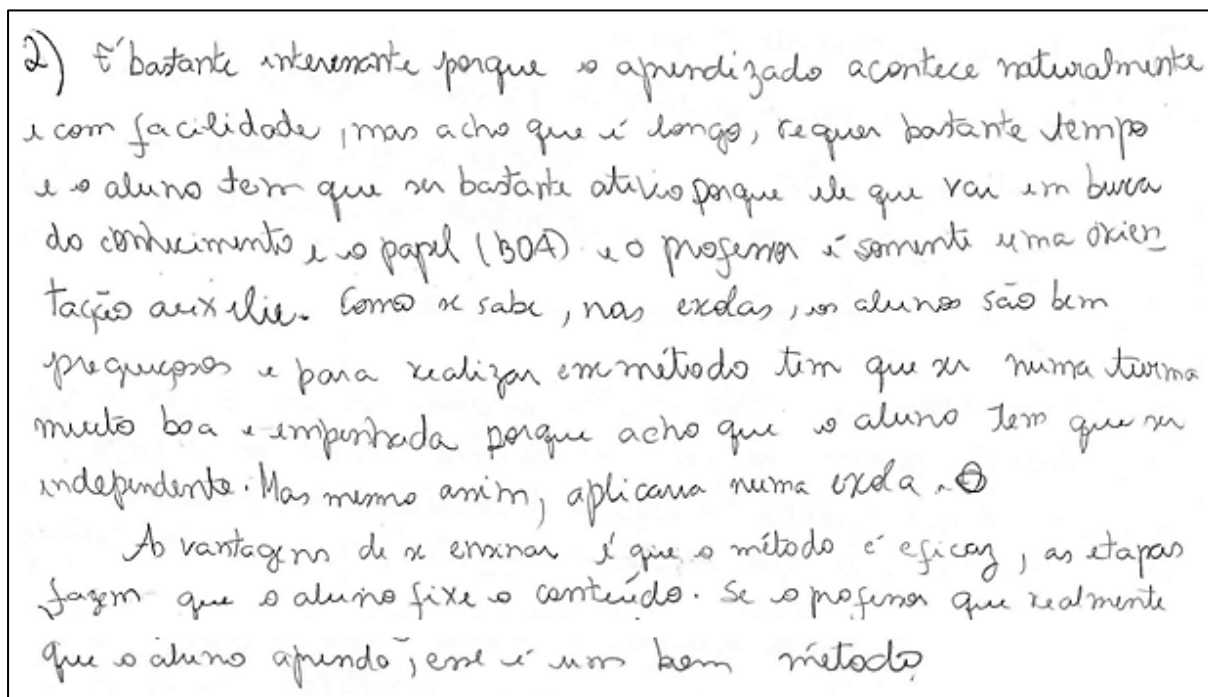 2) É bastante interessante porque o aprendizado acontece naturalmente
e com facilidade, mas acho que é longo, requer bastante tempo
e o aluno tem que ser bastante ativo porque ele que vai em busca
do conhecimento e o papel (BOA) e o professor é somente uma orien
tação auxilie. Como se sabe, nas escolas, os alunos são bem
preguiçosos e para realizar esse método tem que ser numa turma
muito boa e empenhada porque acho que o aluno tem que ser
independente. Mas mesmo assim, aplicaria numa escola.
As vantagens de se ensinar é que o método é eficaz, as etapas
fazem que o aluno fixe o conteúdo. Se o professor que realmente
que o aluno aprenda, esse é um bom método